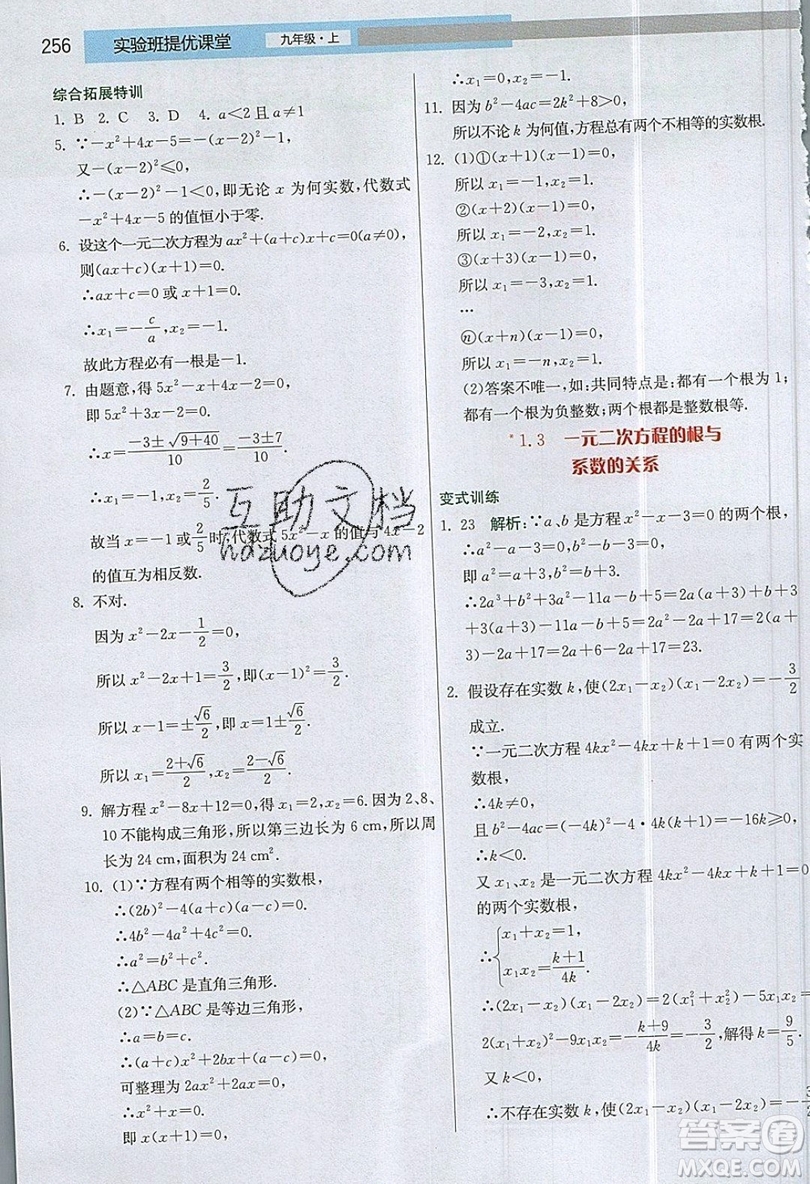 256 实验班提优课堂 九年级·上
综合拓展特训
1. B 2. C 3. D 4. a<2且a≠1
5. ∵-x²+4x-5=-(x-2)²-1,
又-(x-2)²≤0,
∴-(x-2)²-1<0,即无论x为何实数,代数式
-x²+4x-5的值恒小于零.
6. 设这个一元二次方程为ax²+(a+c)x+c=0(a≠0),
则(ax+c)(x+1)=0.
∴ax+c=0或x+1=0.
∴x₁=-c/a,x₂=-1.
故此方程必有一根是-1.
7. 由题意,得5x²-x+4x-2=0,
即5x²+3x-2=0.
∴x=(-3±√(9+40))/10=(-3±7)/10.
∴x₁=-1,x₂=2/5.
故当x=-1或2/5时,代数式5x²-x的值与4x-2
的值互为相反数.
8. 不对.
因为x²-2x-1/2=0,
所以x²-2x+1=3/2,即(x-1)²=3/2.
所以x-1=±√6/2,即x=1±√6/2.
所以x₁=(2+√6)/2,x₂=(2-√6)/2.
9. 解方程x²-8x+12=0,得x₁=2,x₂=6.因为2、8、
10不能构成三角形,所以第三边长为6 cm,所以周
长为24 cm,面积为24 cm².
10. (1)∵方程有两个相等的实数根,
∴(2b)²-4(a+c)(a-c)=0.
∴4b²-4a²+4c²=0.
∴a²=b²+c².
∴△ABC是直角三角形.
(2)∵△ABC是等边三角形,
∴a=b=c.
∴(a+c)x²+2bx+(a-c)=0,
可整理为2ax²+2ax=0.
∴x²+x=0,
即x(x+1)=0,
∴x₁=0,x₂=-1.
11. 因为b²-4ac=2k²+8>0,
所以不论k为何值,方程总有两个不相等的实数根.
12. (1)①(x+1)(x-1)=0,
所以x₁=-1,x₂=1.
②(x+2)(x-1)=0,
所以x₁=-2,x₂=1.
③(x+3)(x-1)=0,
所以x₁=-3,x₂=1.
…
ⓝ(x+n)(x-1)=0,
所以x₁=-n,x₂=1.
(2)答案不唯一,如:共同特点是:都有一个根为1;
都有一个根为负整数;两个根都是整数根等.
*1.3 一元二次方程的根与
系数的关系
变式训练
1. 23 解析:∵a、b是方程x²-x-3=0的两个根,
∴a²-a-3=0,b²-b-3=0,
即a²=a+3,b²=b+3.
∴2a³+b²+3a²-11a-b+5=2a(a+3)+b
+3(a+3)-11a-b+5=2a²-2a+17=2(a+3)
-2a+17=2a+6-2a+17=23.
2. 假设存在实数k,使(2x₁-x₂)(x₁-2x₂)=-3/2
成立.
∵一元二次方程4kx²-4kx+k+1=0有两个实
数根,
∴4k≠0,
且b²-4ac=(-4k)²-4·4k(k+1)=-16k≥0,
∴k<0.
又x₁、x₂是一元二次方程4kx²-4kx+k+1=0
的两个实数根,
∴{x₁+x₂=1,
x₁x₂=(k+1)/4k.
∴(2x₁-x₂)(x₁-2x₂)=2(x₁²+x₂²)-5x₁x₂=
2(x₁+x₂)²-9x₁x₂=-(k+9)/4k=-3/2,解得k=9/5.
又k<0,
∴不存在实数k,使(2x₁-x₂)(x₁-2x₂)=-3/2
互助文档
huzuoye.com
答案圈
MXQE.COM